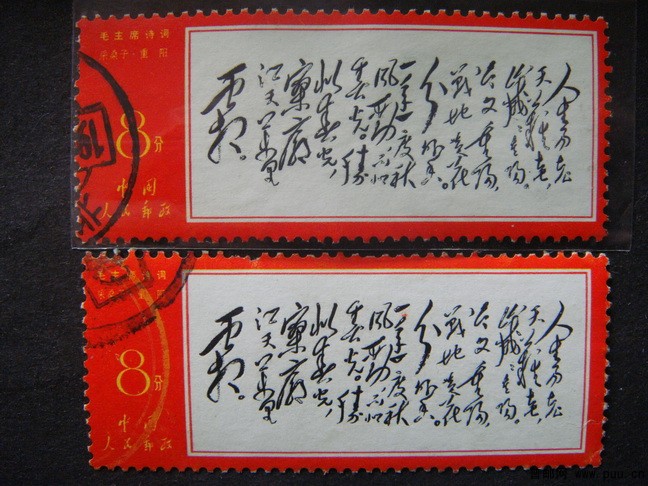 毛主席诗词
采桑子·重阳
8分
中国
人民邮政
人生易老
天难老,
岁岁重阳。
今又重阳,
战地黄花
分外香。
一年一度秋
风劲,不似
春光。胜
似春光,
寥廓
江天万里
霜。
毛主席诗词
8分
中国
人民邮政
人生易老
天难老,
岁岁重阳。
今又重阳,
战地黄花
分外香。
一年一度秋
风劲,不似
春光。胜
似春光,
寥廓
江天万里
霜。